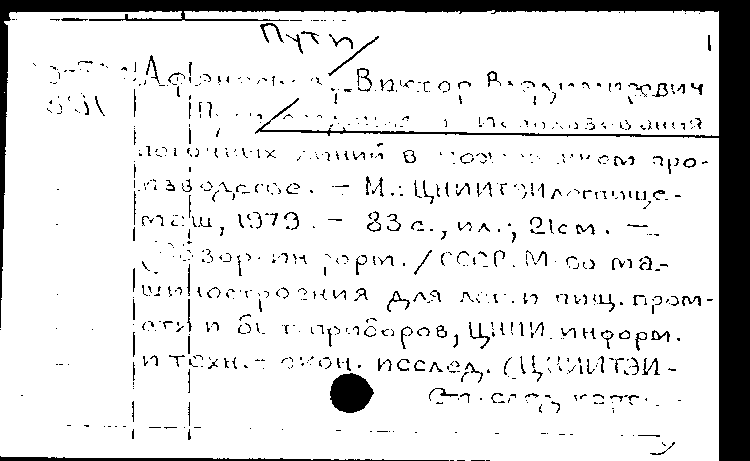 Пути
1
Виктор Владимирович
Пути создания и использования
поточных линий в кожевенном про-
изводстве. - М.: ЦНИИТЭИлегпище-
маш, 1979. - 83 с., ил.; 21 см. -
(Обзор. информ. / СССР. М-во ма-
шиностроения для лег. и пищ. пром-
сти и быт. приборов, ЦНИИ информ.
и техн.-экон. исслед. (ЦНИИТЭИ-
См. след. карт.